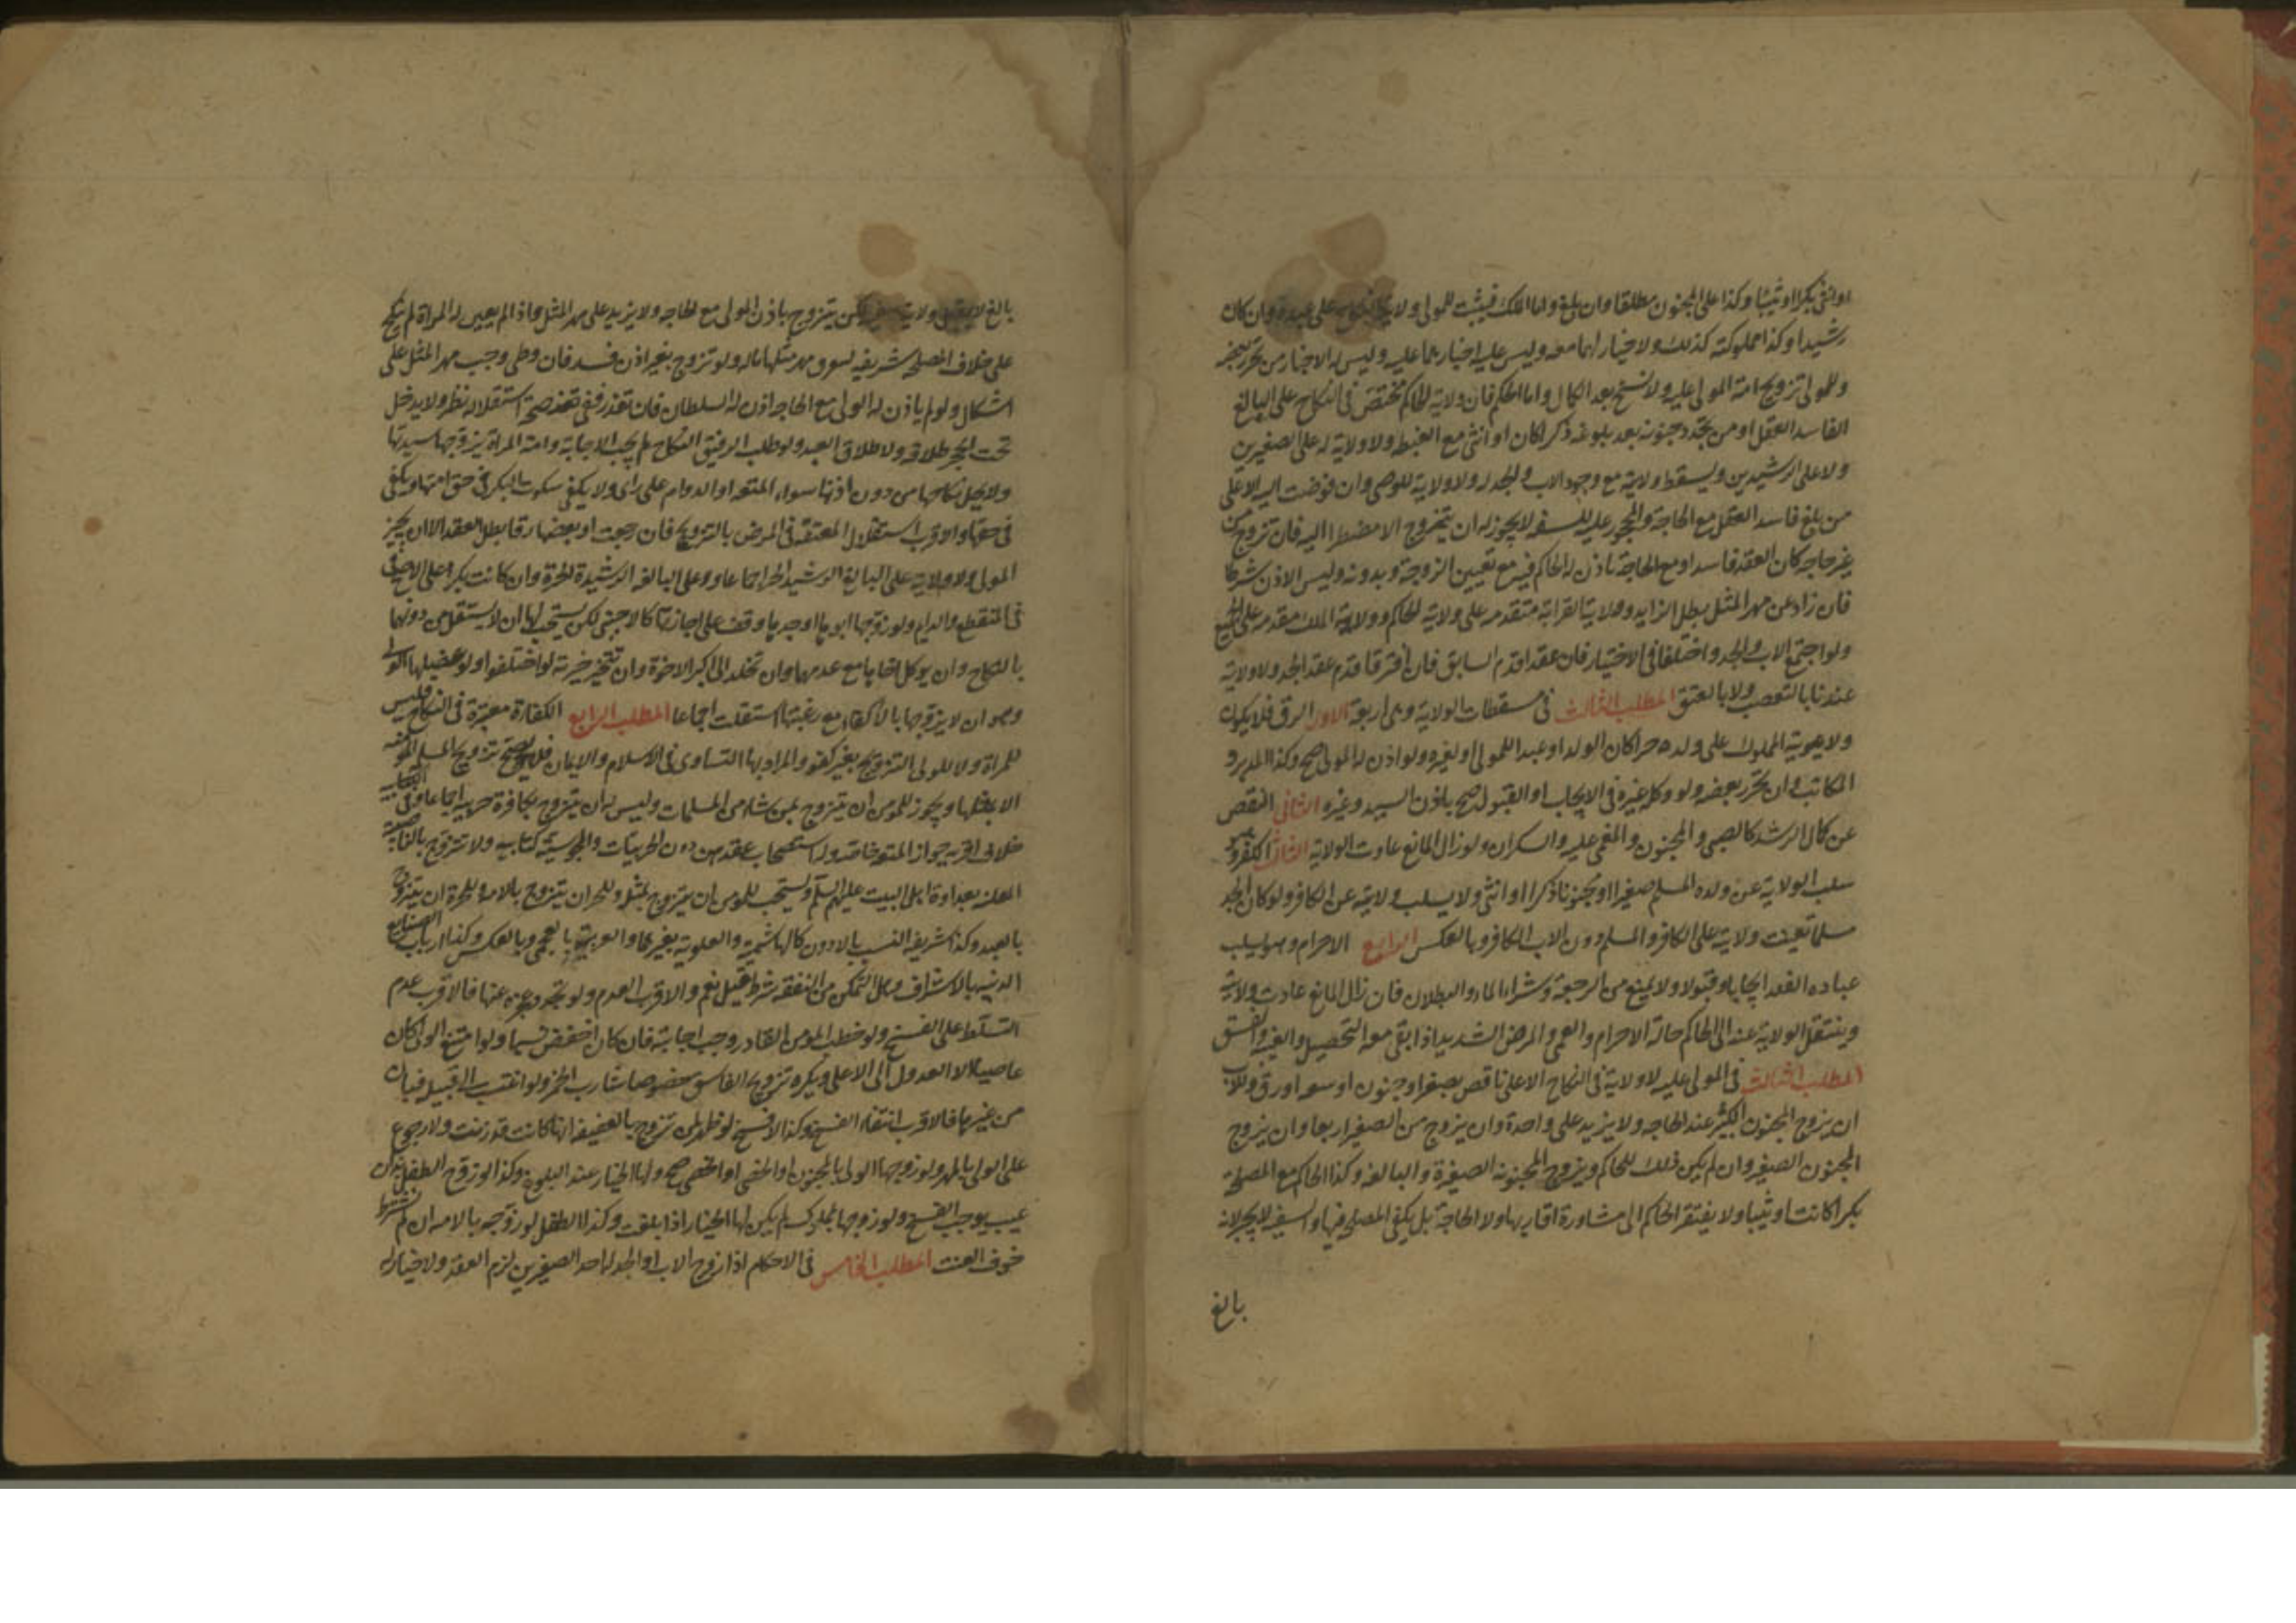 او انثى بكرا او ثيبا وكذا على المجنون مطلقا وان بلغ واما الملك فيثبت للمولى ولاية النكاح على عبده وان كان
رشيدا وكذا مملوكته كذلك ولا خيار لهما معه وليس عليه اجبارهما عليه وليس له الاجبار من تحرر بعضه
وللمولى تزويج امة المولى عليه ولا فسخ بعد الكمال واما الحكم فان ولاية الحاكم تختص في النكاح على البالغ
الفاسد العقل او من تجدد جنونه بعد بلوغه ذكرا كان او انثى مع الغبطة ولا ولاية له على الصغيرين
ولا على الرشيدين ويسقط ولايته مع وجود الاب والجد له ولا ولاية للوصى وان فوضت اليه الا على
من بلغ فاسد العقل مع الحاجة والمحجور عليه للسفه لا يجوز له ان يتزوج الا مضطرا اليه فان تزوج من
غير حاجه كان العقد فاسدا ومع الحاجة ياذن له الحاكم فيه مع تعيين الزوجة وبدونه وليس الاذن شرطا
فان زاد عن مهر المثل بطل الزايد وولاية القرابة متقدمة على ولاية الحاكم وولاية الملك مقدمة على الجميع
ولو اجتمع الاب والجد واختلفا في الاختيار فان عقدا قدم السابق فان اقترقا قدم عقد الجد ولا ولاية
عندنا بالتعصب ولا بالعتق المطلب الثالث في مسقطات الولاية وهى اربعة الاول الرق فلا يكون
ولا هوية المملوك على ولده حرا كان الولد او عبدا للمولى او لغيره ولو اذن له المولى صح وكذا المدبر و
المكاتب وان تحرر بعضه ولو وكله غيره في الايجاب او القبول صح باذن السيد وغيره الثاني النقص
عن كمال الرشد كالصبى والمجنون والمغمى عليه والسكران ولو زال المانع عادت الولاية الثالث الكفر وهو
سلب الولاية عن ولده المسلم صغيرا او مجنونا ذكرا او انثى ولا يسلب ولايته عن الكافر ولو كان الجد
مسلما تعينت ولايته على الكافر والمسلم دون الاب الكافر وبالعكس الرابع الاحرام وهو يسلب
عباده العقد ايجابا وقبولا ولا يمنع من الرجعة وشراء الاماء والبطلان فان زال المانع عادت ولايته
وينتقل الولاية عنه الى الحاكم حالة الاحرام والعمى والمرض الشديد اذا ابقى معه التحصيل والغيبه والفسق
المطلب الثالث في المولى عليه لا ولاية في النكاح الا على ناقص بصغر او جنون او سعه او رق وللاب
ان يزوج المجنون الكبير عند الحاجه ولا يزيد على واحدة وان يزوج من الصغير اربعا وان يزوج
المجنون الصغير وان لم يكن ذلك للحاكم ويزوج المجنونه الصغيرة والبالغه وكذا الحاكم مع المصلحة
بكرا كانت او ثيبا ولا يفتقر الحاكم الى مشاورة اقاربها ولا الحاجة بل يكفى المصلحه فيها والسفيه لا يجبر لانه
بالغ
بالغ لا يستقل ولايته لكن يتزوج باذن المولى مع الحاجه ولا يزيد على مهر المثل واذا لم يعين له المراة لم ينكح
على خلاف المصلحه شريفه يسوق مهر مثلها ماله ولو تزوج بغير اذن فسد فان وطى وجب مهر المثل على
اشكال ولو لم ياذن له الولى مع الحاجه اذن له السلطان فان تعذر ففى صحة استقلاله نظر ولا يدخل
تحت الحجر طلاقه ولا طلاق العبد ولو طلب الرقيق النكاح لم يجب الاجابة وامة المراة يزوجها سيدتها
ولا يحل نكاحها من دون اذنها سواء المتعه او الدوام على راى ولا يكفى سكوت البكر في حق امتها ويكفى
في حقها والاقرب استقلال المعتقة في المرض بالتزويج فان رجعت او بعضها رقا بطل العقد الا ان يجيز
المولى ولا ولاية على البالغ الرشيد الحر اجماعا ولا على البالغه الرشيدة الحرة وان كانت بكرا على الاصح
في المنقطع والدايم ولو زوجها ابوها او جدها وقف على اجازتها كالاجنبى لكن يستحب لها ان لا يستقل من دونهما
بالنكاح وان يوكل اخاها مع عدمهما وان تخلد الى اكبر الاخوة وان تتخير خيرته لو اختلفوا ولو عضلها الولى
وهو ان لا يزوجها بالاكفاء مع رغبتها استقلت اجماعا المطلب الرابع الكفاءة معتبرة في النكاح فليس
للمراة ولا للولى التزويج بغير كفو والمراد بها التساوى في الاسلام والايمان فلا يصح تزويج المسلمه المؤمنه
الا بمثلها ويجوز للمومن ان يتزوج بمن شاء من المسلمات وليس له ان يتزوج بكافرة حربيه اجماعا وفى الكتابيه
خلاف اقربه جواز المتعه خاصه وله استصحاب عقدهن دون الحربيات والمجوسية كتابيه ولا تتزوج بالناصبية
المعلنه بعداوة اهل البيت عليهم السلام ويستحب للمومن ان يتزوج بمثله وللحر ان يتزوج بالامه وللحرة ان يتزوج
بالعبد وكذا شريفة النسب بالادون كالهاشمية والعلوية بغيرهما والعربية بالعجمى وبالعكس وكذا ارباب الصنايع
الدنيه بالاشراف وهل التمكن من النفقه شرط قيل نعم والاقرب العدم ولو تجدد عجزه عنها فالاقرب عدم
التسلط على الفسخ ولو خطب المومن القادر وجب اجابته فان كان اخفض نسبا ولو امتنع الولى كان
عاصيا الا للعدول الى الاعلى ويكره تزويج الفاسق خصوصا شارب الخمر ولو انتسب الى قبيله فبان
من غيرها فالاقرب انتفاء الفسخ وكذا لا فسخ لو ظهر لمن تزوج بالعفيفه انها كانت قد زنت ولا رجوع
على الولى بالمهر ولو زوجها الولى بالمجنون او الخنثى او الخصى صح ولها الخيار عند البلوغ وكذا لو زوج الطفل بمن
عيب يوجب الفسخ ولو زوجها بمملوك لم يكن لها الخيار اذا بلغت وكذا الطفل لو زوجه بالامه ان لم نشترط
خوف العنت المطلب الخامس في الاحكام اذا زوج الاب او الجد له احد الصغيرين لزم العقد ولا خيار له